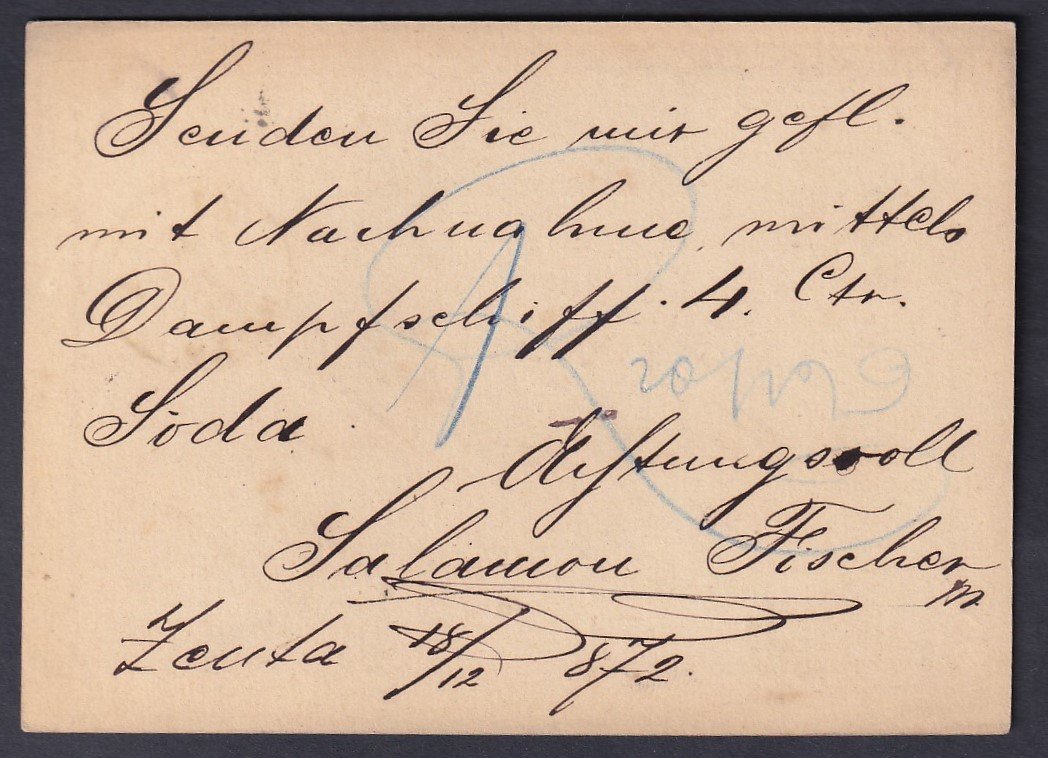 Senden Sie mir gefl.
mit Nachnahme, mittels
Dampfschiff 4. Ctr.
Soda
Achtungsvoll
Salamon Fischer
Zenta 18/12 872.